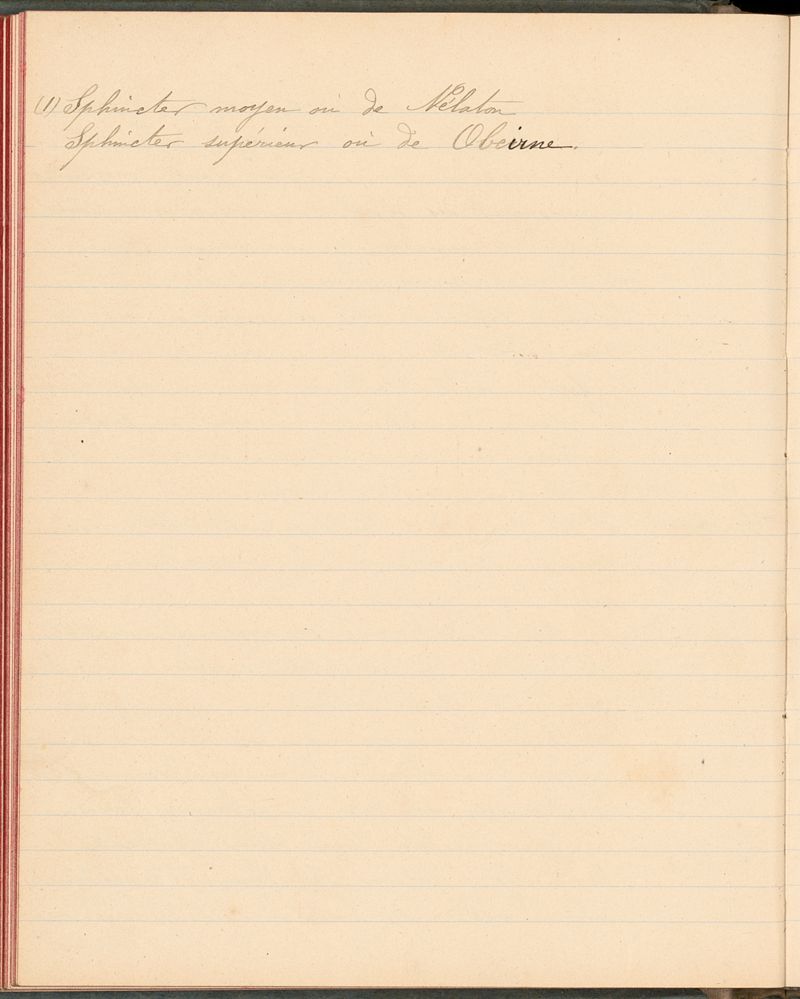 (1) Sphincter moyen ou de Nélaton
Sphincter supérieur ou de Obeirne.